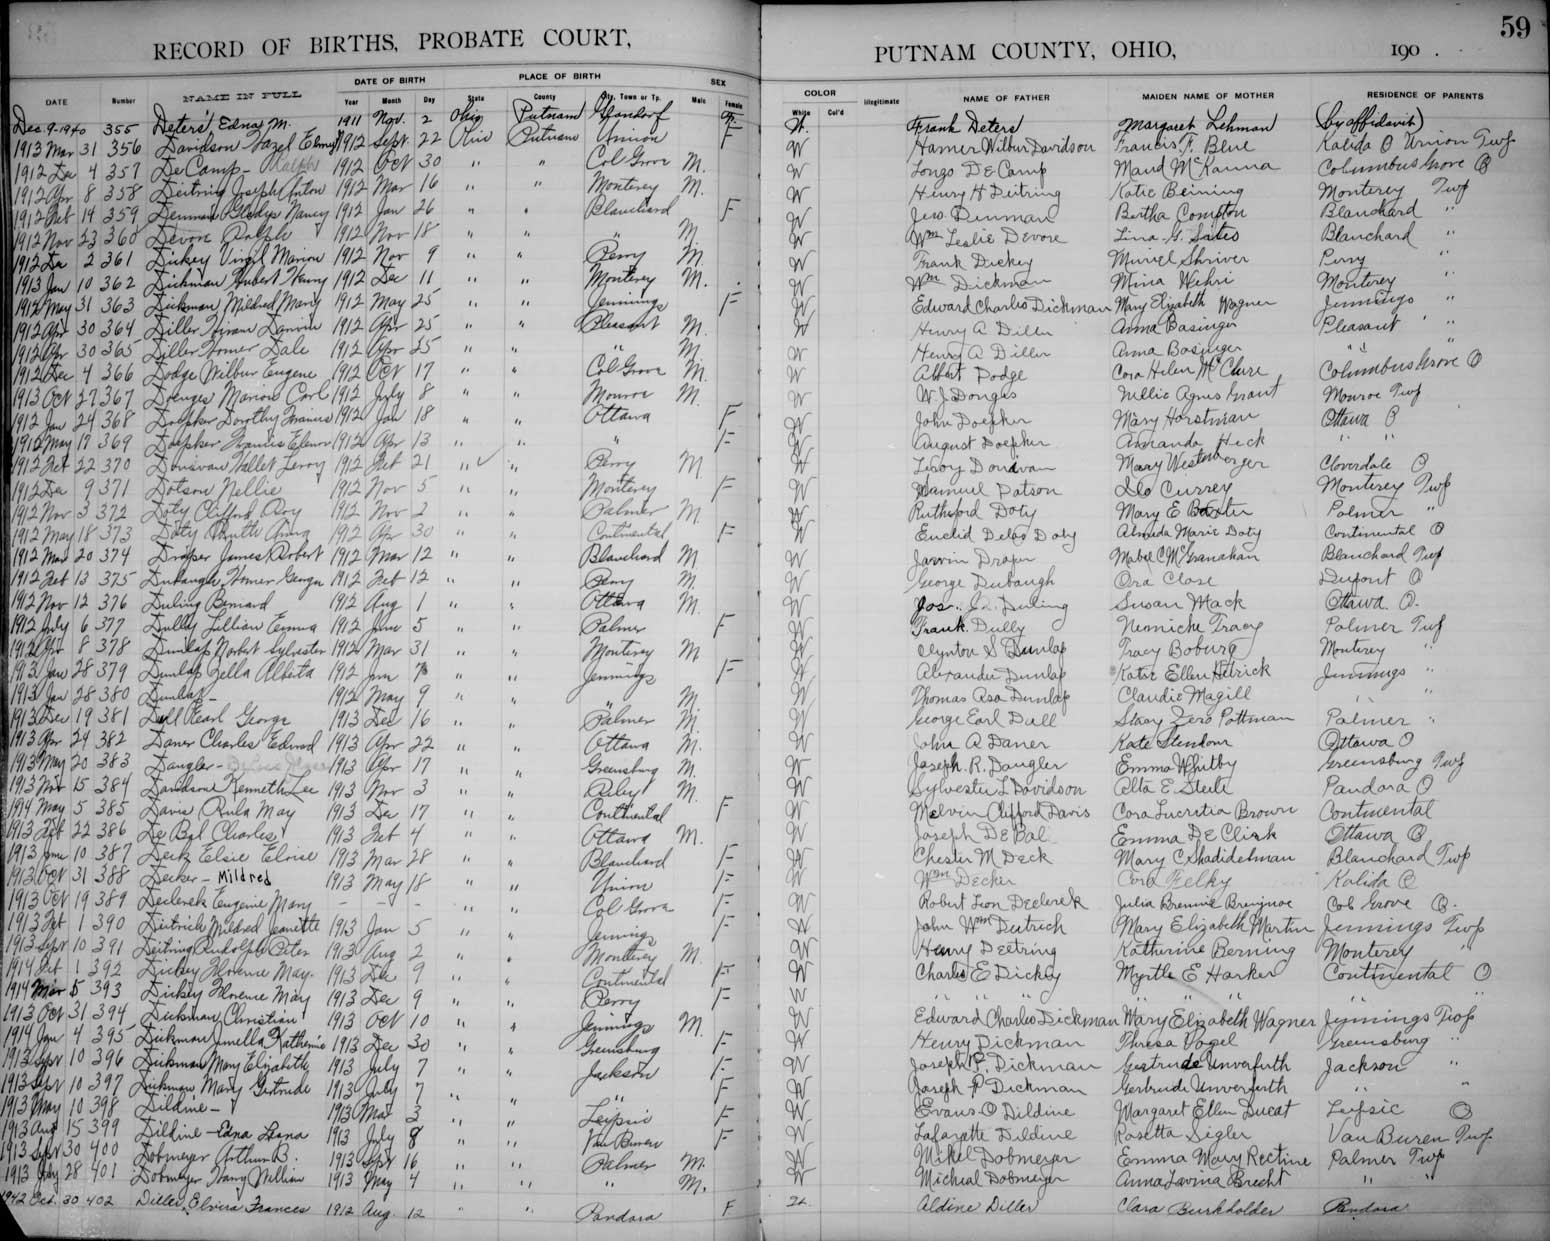 59
RECORD OF BIRTHS, PROBATE COURT, PUTNAM COUNTY, OHIO, 190 .
DATE OF BIRTH PLACE OF BIRTH SEX COLOR
DATE Number NAME IN FULL Year Month Day State County City, Town or Tp. Male Female White Col'd Illegitimate NAME OF FATHER MAIDEN NAME OF MOTHER RESIDENCE OF PARENTS
Dec 9-1940 355 Deters, Edna M. 1911 Nov. 2 Ohio Putnam Glandorf F. W. Frank Deters Margaret Lehman (by affidavit)
1913 Mar 31 356 Davidson Hazel 1912 Sept 22 Ohio Putnam Union F W Hamer Wilbur Davidson Francis F. Blue Kalida O Union Twp
1912 Dec 4 357 DeCamp - Ralph 1912 Oct 30 " " Col Grove M. W Longo DeCamp Maud McKanna Columbus Grove O
1912 Apr 8 358 Deitring Joseph Anton 1912 Mar 16 " " Monterey M. W Henry H Deitring Katie Beining Monterey Twp
1912 Feb 14 359 Denman Gladys Nancy 1912 Jan 26 " " Blanchard F W Jno. Denman Bertha Compton Blanchard "
1912 Nov 23 360 Devore Ralph 1912 Nov 18 " " " M W Wm Leslie Devore Lina G. Blanchard "
1912 Dec 2 361 Dickey Virgil Marion 1912 Nov 9 " " Perry M. W Frank Dickey Muriel Shriver Perry "
1913 Jan 10 362 Dickman Hubert Henry 1912 Dec 11 " " Monterey M. W Wm Dickman Mina Wehri Monterey "
1912 May 31 363 Dickman Mildred Mary 1912 May 25 " " Jennings F W Edward Charles Dickman Mary Elizabeth Wagner Jennings "
1912 Apr 30 364 Diller Hiram 1912 Apr 25 " " Pleasant M. W Henry A Diller Anna Basinger Pleasant "
1912 Apr 30 365 Diller Homer Dale 1912 Apr 25 " " " M W Henry A Diller Anna Basinger " "
1912 Dec 4 366 Dodge Wilbur Eugene 1912 Oct 17 " " Col Grove M. W Albert Dodge Cora Helen McClure Columbus Grove O
1913 Oct 27 367 Doenges Marion Carl 1912 July 8 " " Monroe M. W W. J. Donges Nellie Agnes Grant Monroe Twp
1912 Jan 24 368 Doepker Dorothy 1912 Jan 18 " " Ottawa F W John Doepker Mary Horstman Ottawa O
1912 May 17 369 Doepker Francis Elenor 1912 Apr 13 " " " F W August Doepker Amanda Heck " "
1912 Feb 22 370 Donovan Hallet Leroy 1912 Feb 21 " " Perry M W Leroy Donovan Mary Westenberger Cloverdale O
1912 Dec 9 371 Dotson Nellie 1912 Nov 5 " " Monterey F W Samuel Dotson Currey Monterey Twp
1912 Nov 3 372 Doty Clifford Roy 1912 Nov 2 " " Palmer M W Rutherford Doty Mary E Baxter Palmer "
1912 May 18 373 Doty Ruth Anna 1912 Apr 30 " " Continental F W Euclid Delos Doty Almeda Marie Doty Continental O
1912 Mar 20 374 Draper James Robert 1912 Mar 12 " " Blanchard M W Jarvin Draper Mabel C McGranahan Blanchard Twp
1912 Feb 13 375 Dubaugh Homer George 1912 Feb 12 " " Perry M W George Dubaugh Ora Close Dupont O
1912 Nov 12 376 Duling Bernard 1912 Aug 1 " " Ottawa M. W Jos. Duling Susan Mack Ottawa O.
1912 July 6 377 Dully Lillian Emma 1912 June 5 " " Palmer F W Frank Dully Tracy Palmer Twp
1912 Apr 8 378 Dunlap Norbert Sylvester 1912 Mar 31 " " Monterey M W Clynton S Dunlap Tracy Monterey "
1913 Jan 28 379 Dunlap Zella Alberta 1912 Jun 7 " " Jennings F W Alexander Dunlap Katie Ellen Hetrick Jennings "
1913 Jan 28 380 Dunlap - 1912 May 9 " " " M W Thomas Asa Dunlap Claudie Magill " "
1913 Dec 19 381 Dull Pearl George 1913 Dec 16 " " Palmer M W George Earl Dull Pottman Palmer "
1913 Apr 24 382 Daner Charles Edward 1913 Apr 22 " " Ottawa M. W John A Daner Kate Ottawa O
1913 May 20 383 Dangler - 1913 Apr 17 " " Greensburg M. W Joseph. R. Dangler Emma Whitby Greensburg Twp
1913 Nov 15 384 Davidson Kenneth Lee 1913 Nov 3 " " Riley M. W Sylvester L Davidson Alta E. Steele Pandora O
1914 May 5 385 Davis Rula May 1913 Dec 17 " " Continental F W Melvin Clifford Davis Cora Lucretia Brown Continental
1913 Feb 22 386 De Bal Charles 1913 Feb 4 " " Ottawa M. W Joseph De Bal Emma De Ottawa O
1913 June 10 387 Deck Elsie Eloise 1913 Mar 28 " " Blanchard F W Chester M Deck Mary C Blanchard Twp
1913 Oct 31 388 Decker - Mildred 1913 May 18 " " Union F W Wm Decker Cora Felky Kalida O
1913 Oct 19 389 Declerck Eugenie Mary - - - " " Col Grove F W Robert Leon Declerck Julia Col Grove O.
1913 Feb 1 390 Dietrich Mildred Jeanitte 1913 Jan 5 " " Jennings F W John Wm Dietrich Mary Elizabeth Martin Jennings Twp
1913 Sept 10 391 Deitring Rudolph Peter 1913 Aug 2 " " Monterey M. W Henry Deetring Katherine Berning Monterey "
1914 Feb 1 392 Dickey Florence May. 1913 Dec 9 " " Continental F W Charles E Dickey Myrtle E Harker Continental O
1914 Mar 5 393 Dickey Florence May 1913 Dec 9 " " Perry F W " " " " " " " "
1913 Oct 31 394 Dickman Christian 1913 Oct 10 " " Jennings M. W Edward Charles Dickman Mary Elizabeth Wagner Jennings Twp
1914 Jan 4 395 Dickman Katherine 1913 Dec 30 " " Greensburg F W Henry Dickman Theresa Vogel Greensburg "
1913 Sept 10 396 Dickman Mary Elizabeth 1913 July 7 " " Jackson F W Joseph P. Dickman Gertrude Unverfurth Jackson "
1913 Sept 10 397 Dickman Mary Gertrude 1913 July 7 " " " F W Joseph P Dickman Gertrude Unverfurth " "
1913 May 10 398 Dildine - 1913 Mar 3 " " Leipsic F W Evans O Dildine Margaret Ellen Ducat Leipsic O
1913 Aug 15 399 Dildine - Edna 1913 July 8 " " Van Buren F W Lafayette Dildine Rosetta Sigler Van Buren Twp
1913 Sept 30 400 Dobmeyer Arthur B. 1913 Sept 16 " " Palmer M. W Mikel Dobmeyer Emma Mary Rectine Palmer Twp
1913 July 28 401 Dobmeyer Harry William 1913 May 4 " " " M. W Micheal Dobmeyer Anna Lavina Brecht " "
1942 Oct. 30 402 Diller, Elvira Frances 1912 Aug. 12 " " Pandora F W. Aldine Diller Clara Burkholder Pandora